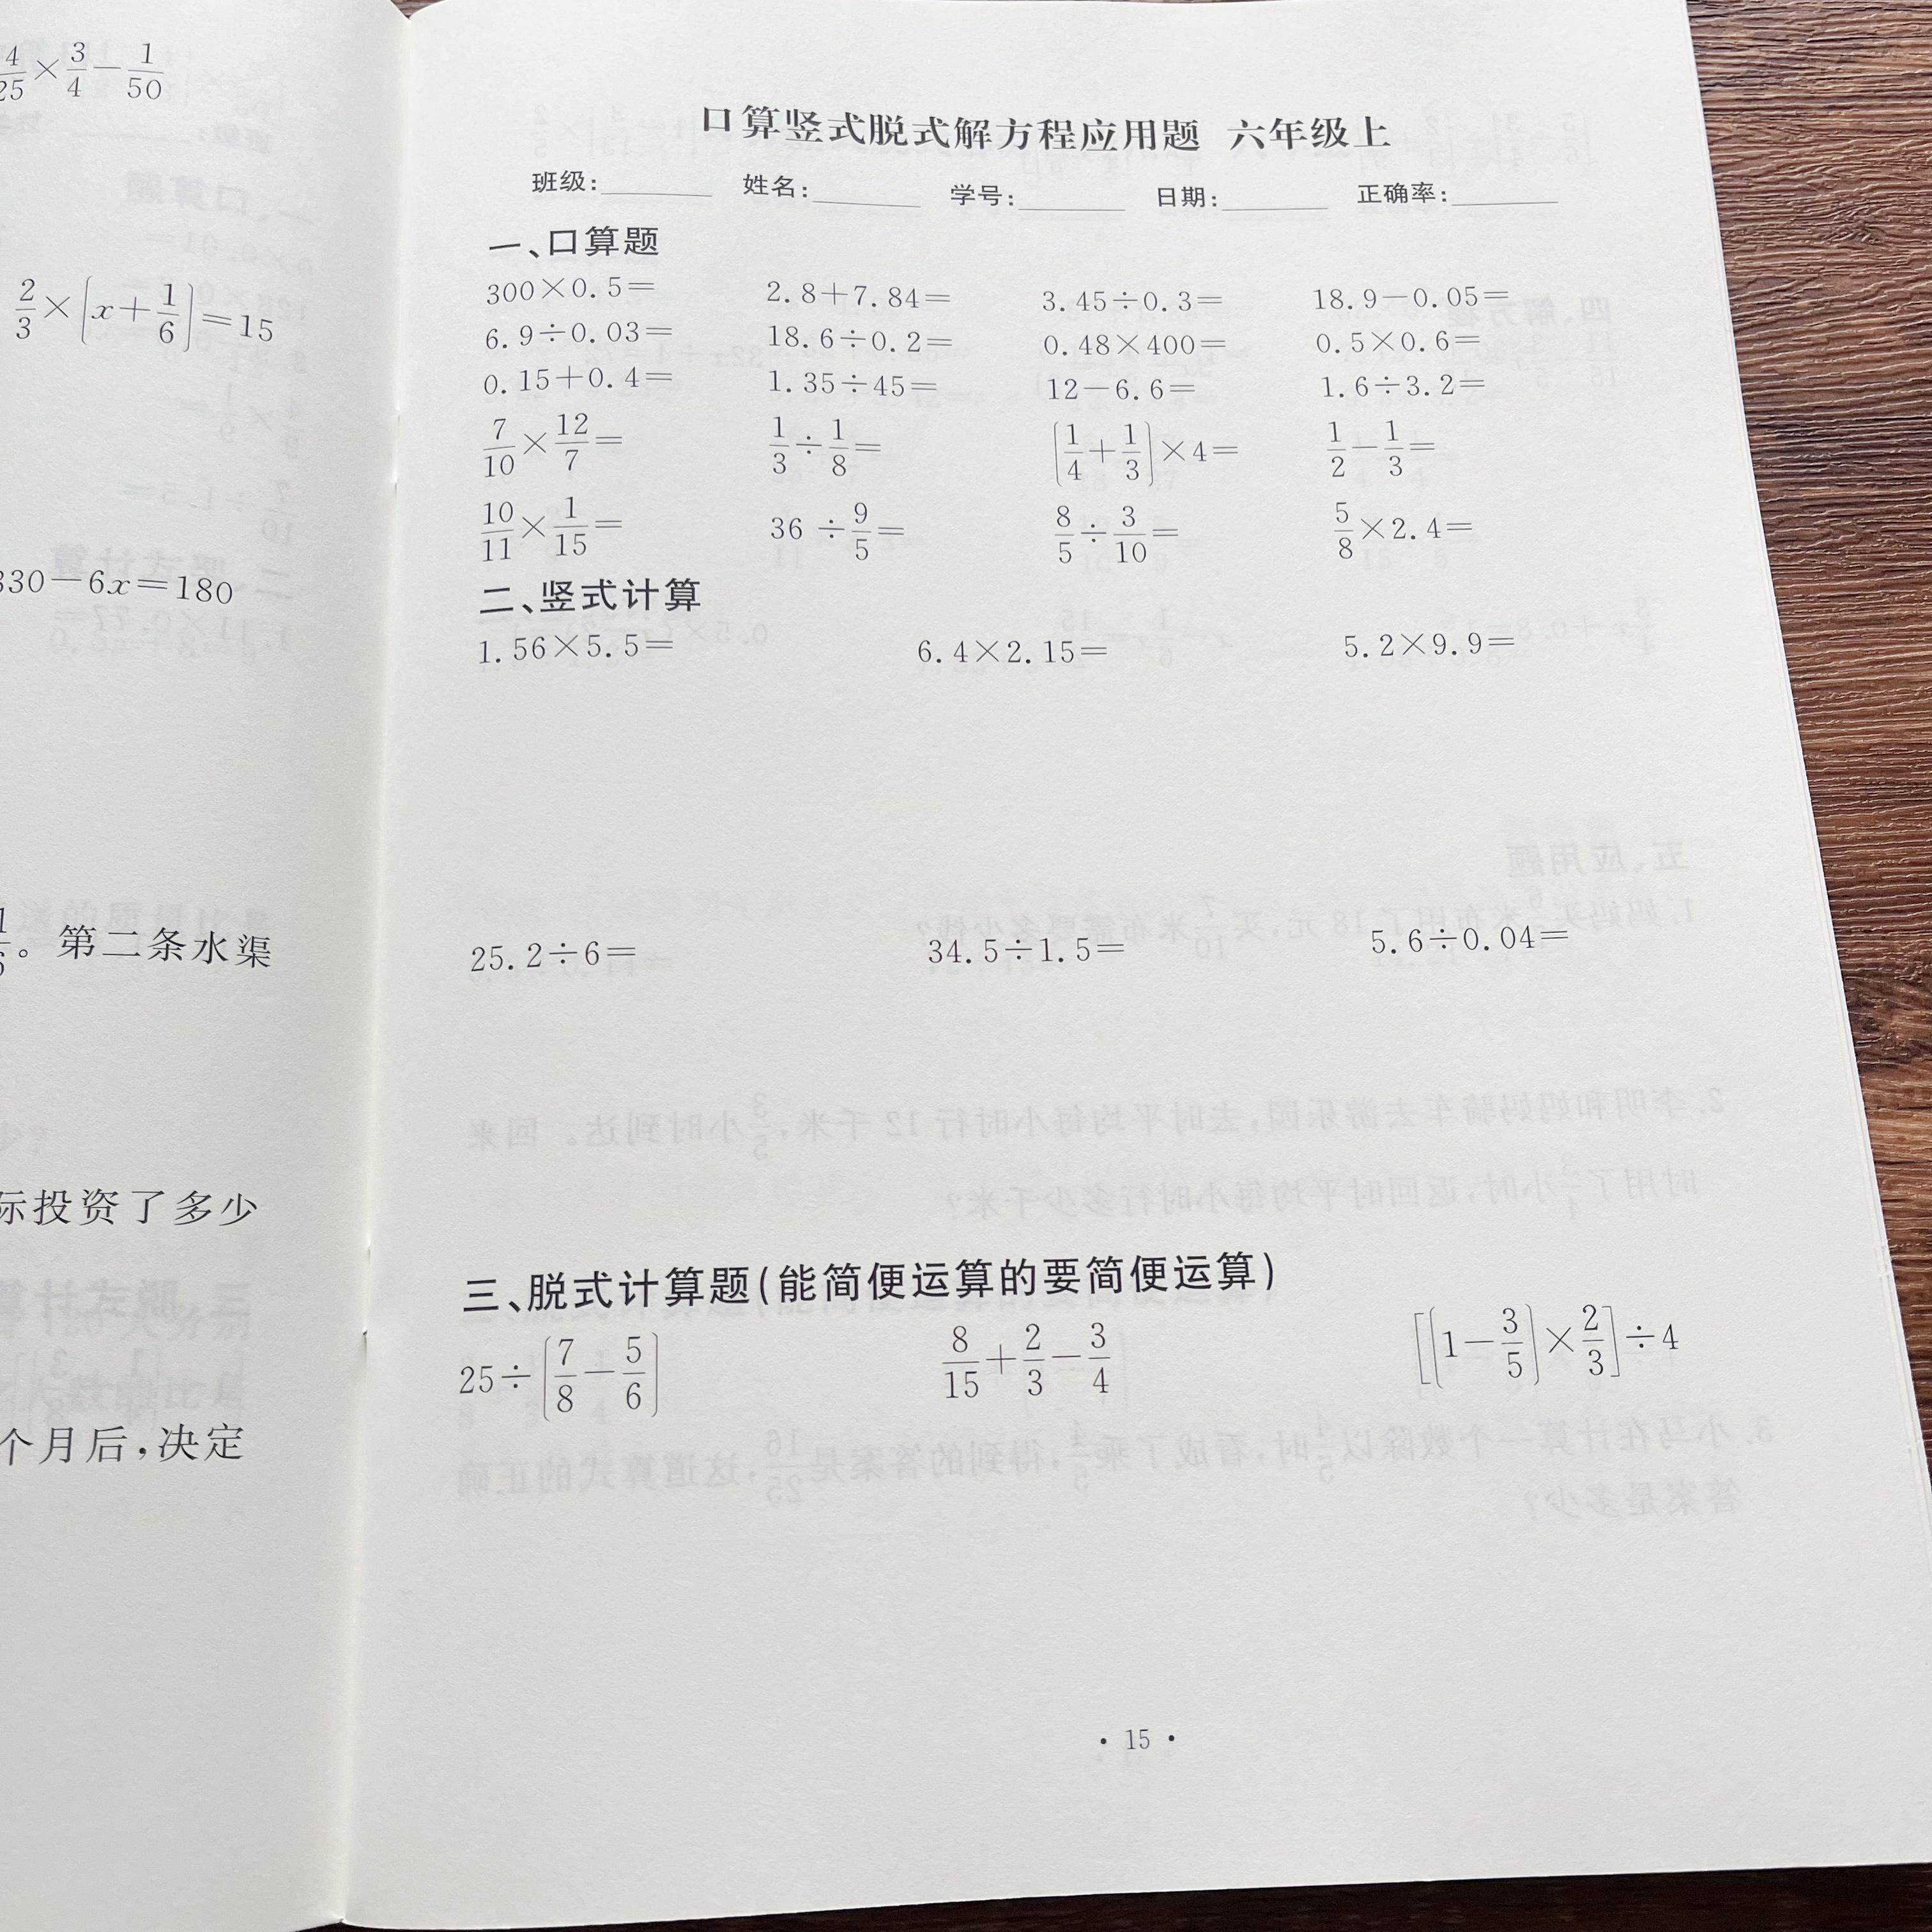 4/25×3/4－1/50
2/3×(x＋1/6)＝15
330－6x＝180
。第二条水渠
际投资了多少
个月后,决定
口算竖式脱式解方程应用题 六年级上
班级:________ 姓名:________ 学号:________ 日期:________ 正确率:________
一、口算题
300×0.5＝ 2.8＋7.84＝ 3.45÷0.3＝ 18.9－0.05＝
6.9÷0.03＝ 18.6÷0.2＝ 0.48×400＝ 0.5×0.6＝
0.15＋0.4＝ 1.35÷45＝ 12－6.6＝ 1.6÷3.2＝
7/10×12/7＝ 1/3÷1/8＝ (1/4＋1/3)×4＝ 1/2－1/3＝
10/11×1/15＝ 36÷9/5＝ 8/5÷3/10＝ 5/8×2.4＝
二、竖式计算
1.56×5.5＝ 6.4×2.15＝ 5.2×9.9＝
25.2÷6＝ 34.5÷1.5＝ 5.6÷0.04＝
三、脱式计算题(能简便运算的要简便运算)
25÷(7/8－5/6) 8/15＋2/3－3/4 [(1－3/5)×2/3]÷4
· 15 ·